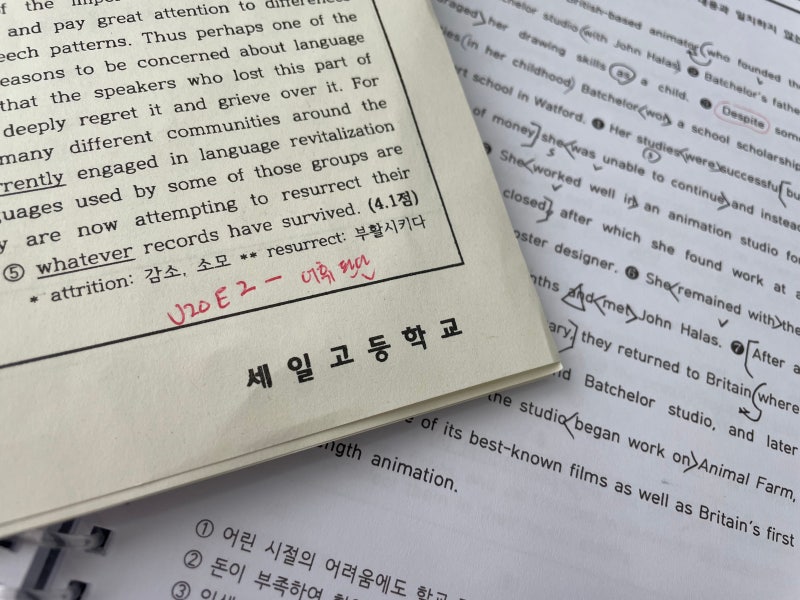 of the
and pay great attention to differences
speech patterns. Thus perhaps one of the
reasons to be concerned about language
that the speakers who lost this part of
deeply regret it and grieve over it. For
many different communities around the
rrently engaged in language revitalization
guages used by some of those groups are
y are now attempting to resurrect their
⑤ whatever records have survived. (4.1점)
* attrition: 감소, 소모 ** resurrect: 부활시키다
U20E2 -
세일고등학교
British-based animator who founded the
Batchelor studio (with John Halas) ❷ Batchelor's fathe
raged) her drawing skills as a child. ❸ Despite som
(in her childhood) Batchelor won a school scholarship
rt school in Watford. ❹ Her studies were successful bu
of money] she was unable to continue and instead
She worked well in an animation studio fo
closed] after which she found work at a
oster designer. ❻ She remained with the
nths and met John Halas. ❼ [After a
ary,] they returned to Britain (where
nd Batchelor studio, and later
the studio began work on Animal Farm,
e of its best-known films as well as Britain's first
ngth animation.
① 어린 시절의 어려움에도 학교
② 돈이 부족하여
③